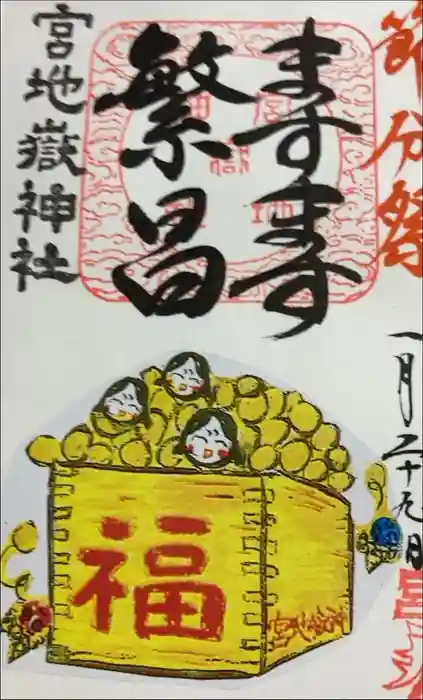 節分祭
一月二十九日
寿寿
繁昌
宮地嶽神社
福